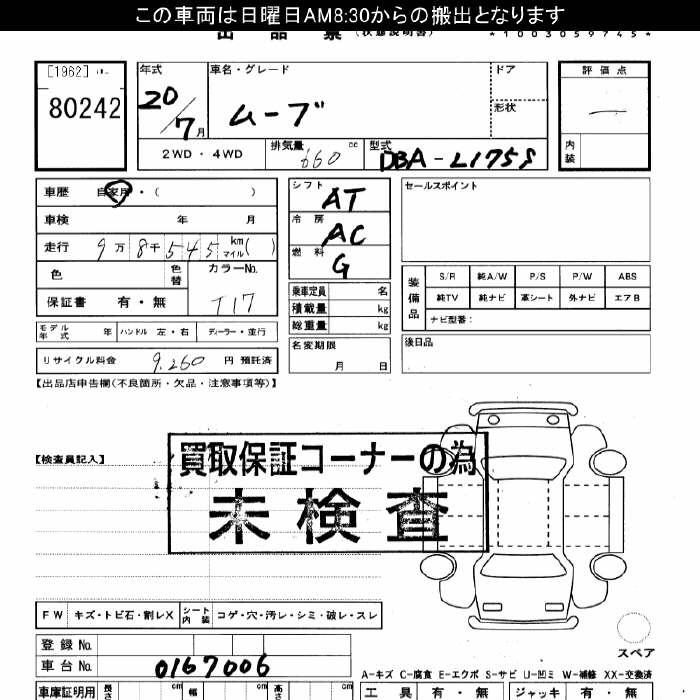 この車両は日曜日AM8:30からの搬出となります
出 品 票 (状態説明書) *1003059745*
[1962]
80242
年式 20/7月
車名・グレード ムーブ
ドア
形状
評価点
内装
2WD・4WD
排気量 660 cc
型式 DBA-L175S
車歴 自家用・( )
車検 年 月
走行 9万8千545 km マイル( )
色
色替
カラーNo. T17
保証書 有・無
モデル年式 年
ハンドル 左・右
ディーラー・並行
リサイクル料金 9,260 円 預託済
シフト AT
冷房 AC
燃料 G
乗車定員 名
積載量 kg
総重量 kg
名変期限
月 日
セールスポイント
装備品
S/R 純A/W P/S P/W ABS
純TV 純ナビ 革シート 外ナビ エアB
ナビ型番:
後日品
【出品店申告欄(不良箇所・欠品・注意事項等)】
【検査員記入】
買取保証コーナーの為
未検査
FW キズ・トビ石・割レX
シート内装 コゲ・穴・汚レ・シミ・破レ・スレ
登録No.
車台No. 0167006
スペア
A-キズ C-腐食 E-エクボ S-サビ U-凹ミ W-補修 XX-交換済
車庫証明用 長さ cm 幅 cm 高さ cm
工具 有・無 ジャッキ 有・無